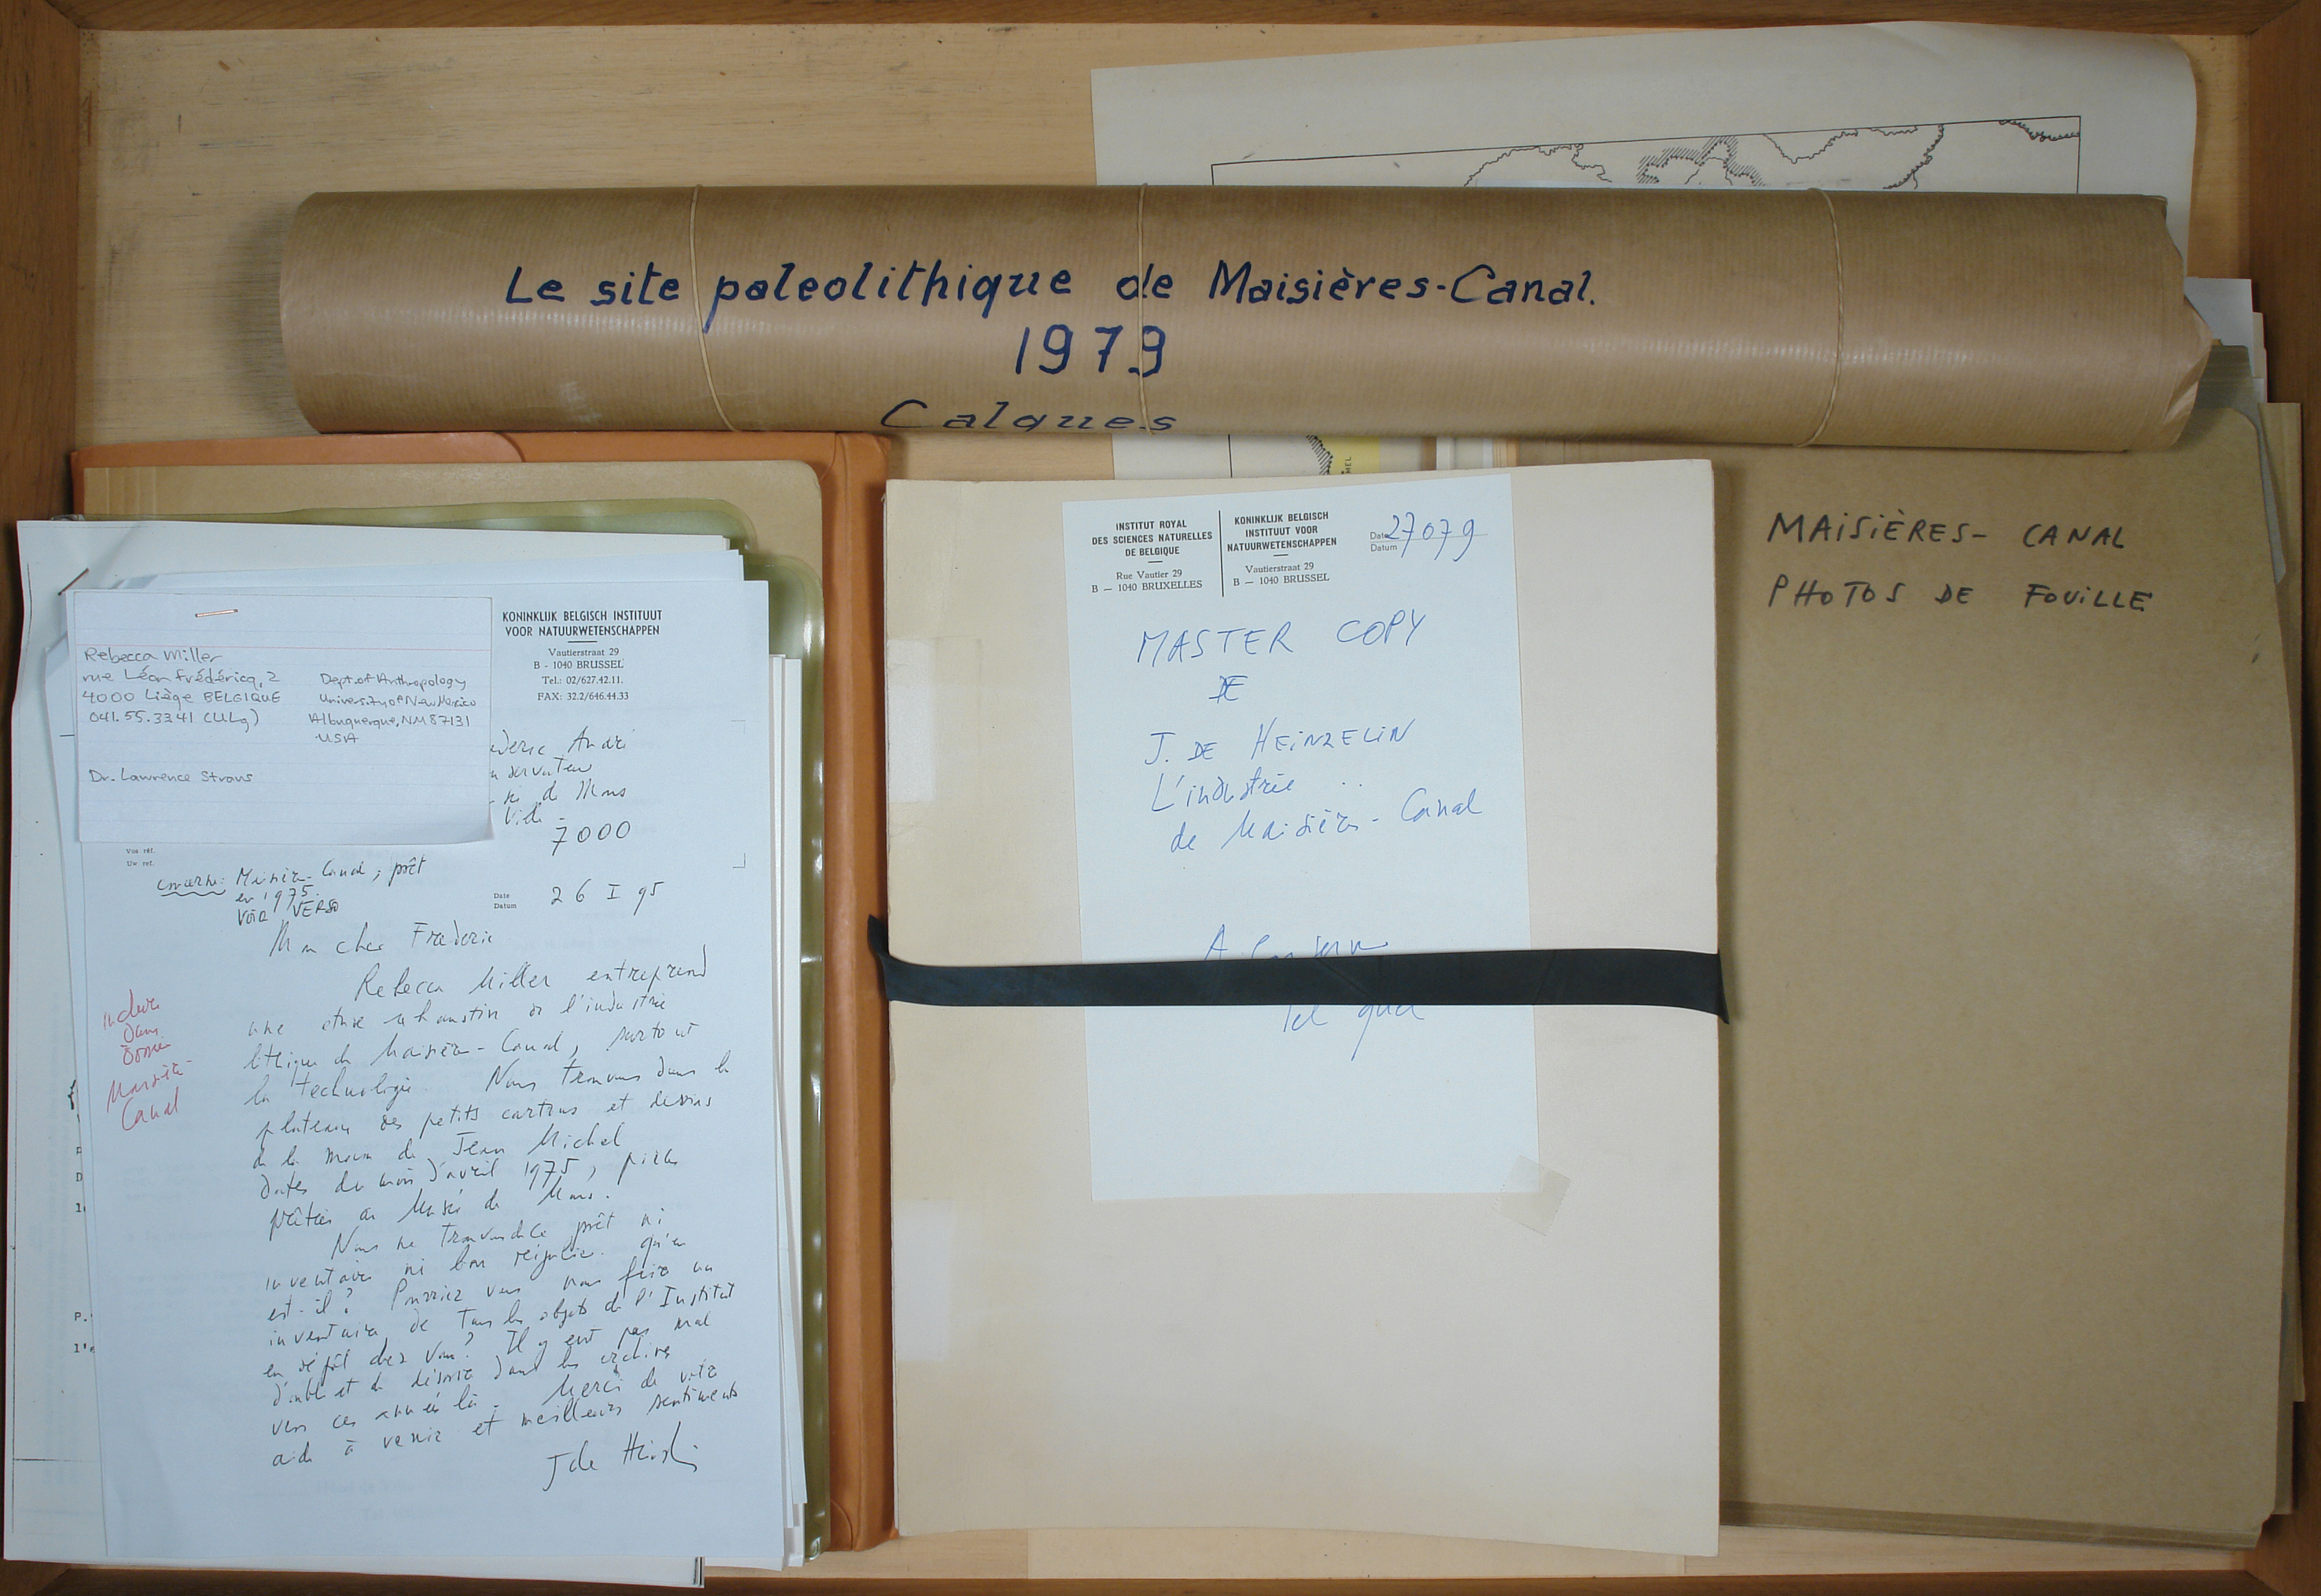 Le site paleolithique de Maisières-Canal.
1979
Calques
MEL
Rebecca Miller
rue Léon Frédéricq, 2
4000 Liège BELGIQUE
041.55.3341 (ULg)
Dept. of Anthropology
University of New Mexico
Albuquerque, NM 87131
USA
Dr. Lawrence Straus
KONINKLIJK BELGISCH INSTITUUT
VOOR NATUURWETENSCHAPPEN
Vautierstraat 29
B - 1040 BRUSSEL
Tel.: 02/627.42.11.
FAX: 32.2/646.44.33
de Mons
7000
Vos réf.
Uw ref.
concerne: Maisière-Canal, prêt
en 1975.
VOIR VERSO
Date
Datum
26 I 95
Mon cher Frederic
Rebecca Miller entreprend
une étude exhaustive de l'industrie
lithique de Maisière-Canal, surtout
la technologie. Nous trouvons dans les
plateaux des petits cartons et dessins
de la main de Jean Michel
datés du mois d'avril 1975, pièces
prêtées au Musée de Mons.
Nous ne trouvons de ce prêt ni
inventaire ni bon régulier. Qu'en
est-il? Pourriez vous nous faire un
inventaire de tous les objets de l'Institut
en dépôt chez vous? Il y eut pas mal
d'oubli et de désordre dans les archives
vers ces années là. Merci de votre
aide à venir et meilleurs sentiments
J de Heinzelin
inclure
dans
dossier
Maisière-
Canal
INSTITUT ROYAL
DES SCIENCES NATURELLES
DE BELGIQUE
Rue Vautier 29
B — 1040 BRUXELLES
KONINKLIJK BELGISCH
INSTITUUT VOOR
NATUURWETENSCHAPPEN
Vautierstraat 29
B — 1040 BRUSSEL
Date
Datum
27079
MASTER COPY
DE
J. DE HEINZELIN
L'industrie ..
de Maisières-Canal
Tel quel
MAISIÈRES- CANAL
PHOTOS DE FOUILLE